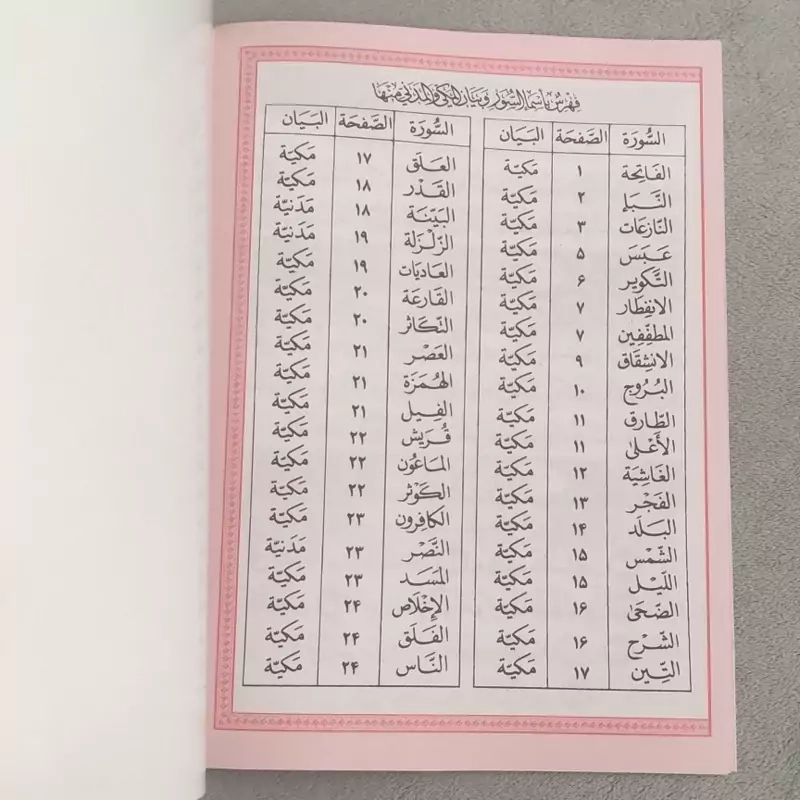 فِهْرِسٌ بِأَسْمَاءِ السُّوَرِ وَبَيَانِ المَكِّي وَالمَدَنِي مِنْهَا
السُّورَة الصَّفحَة البَيَان
الفَاتِحَة ١ مَكيّة
النَّبَإِ ٢ مَكيّة
النَّازعَات ٣ مَكيّة
عَبَسَ ۵ مَكيّة
التَّكوِير ۶ مَكيّة
الانفِطَار ٧ مَكيّة
المطفّفِين ٧ مَكيّة
الانشِقَاق ٩ مَكيّة
البُرُوج ١٠ مَكيّة
الطّارِق ١١ مَكيّة
الأَعْلىٰ ١١ مَكيّة
الغَاشِيَة ١٢ مَكيّة
الفَجْر ١٣ مَكيّة
البَلَد ١۴ مَكيّة
الشّمْس ١۵ مَكيّة
اللّيْل ١۵ مَكيّة
الضّحَىٰ ١۶ مَكيّة
الشّرْح ١۶ مَكيّة
التِّين ١٧ مَكيّة
السُّورَة الصَّفحَة البَيَان
العَلَق ١٧ مَكيّة
القَدْر ١٨ مَكيّة
البَيّنَة ١٨ مَدَنيّة
الزّلْزَلة ١٩ مَدَنيّة
العَاديَات ١٩ مَكيّة
القَارعَة ٢٠ مَكيّة
التّكَاثر ٢٠ مَكيّة
العَصْر ٢١ مَكيّة
الهُمَزَة ٢١ مَكيّة
الفِيل ٢١ مَكيّة
قُرَيش ٢٢ مَكيّة
المَاعُون ٢٢ مَكيّة
الكَوْثر ٢٢ مَكيّة
الكَافِرون ٢٣ مَكيّة
النَّصْر ٢٣ مَدَنيّة
المَسَد ٢٣ مَكيّة
الإِخْلَاص ٢۴ مَكيّة
الفَلَق ٢۴ مَكيّة
النَّاس ٢۴ مَكيّة